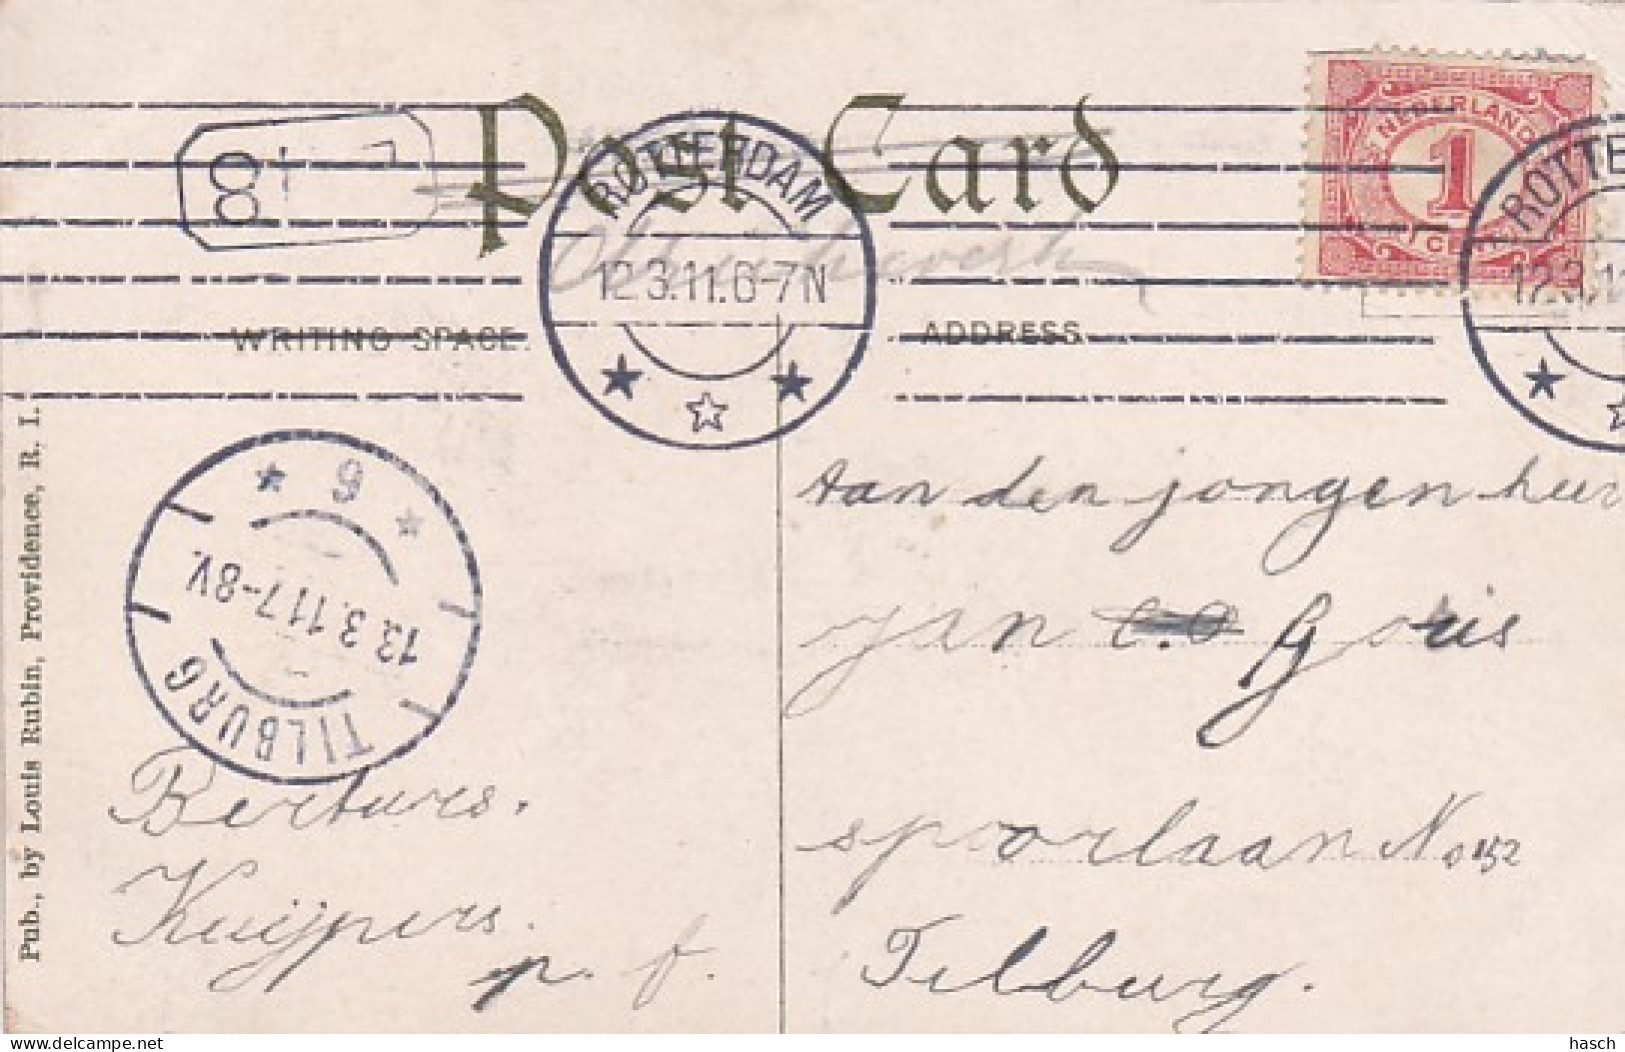 Post Card
NEDERLAND
1
CENT
ROTTERDAM
12.3.11.6-7N
ROTTE
12.3.1
8
WRITING SPACE.
ADDRESS.
Pub., by Louis Rubin, Providence, R. I.
6
13.3.11 7-8V.
TILBURG
Aan den jongen heer
jan Goris
spoorlaan No 152
Tilburg.
Bertus.
Kuijpers.
p. f.
hasch